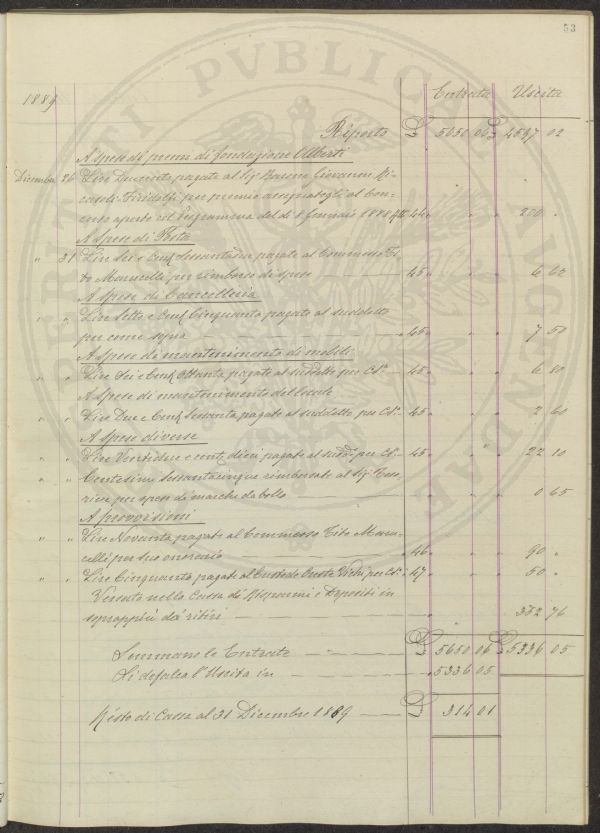 53
1889 Entrata Uscita
Riporto £ 5650 06 £ 4597 02
A Spese di premi di fondazione Alberti
Dicembre 26 Lire Duecento pagate al Sig. Barone Giovanni Ri=
casoli Firidolfi per premio assegnatogli al Con=
corso aperto col Programma del dì 8 Gennaio 1888 44 200 "
A Spese di Posta
" 31 Lire Sei e Cent. Sessantadue pagate al Commesso Ti=
to Marucelli per rimborso di spese — 45 6 62
A Spese di Cancelleria
" " Lire Sette e Cent. Cinquanta pagate al suddetto
per come sopra — 45 7 50
A Spese di mantenimento di mobili
" " Lire Sei e Cent. Ottanta pagate al suddetto per Cs. — 45 6 80
A Spese di mantenimento del locale
" " Lire Due e Cent. Sessanta pagate al suddetto per Cs. 45 2 60
A Spese diverse
" " Lire Ventidue e cent. dieci pagate al sudd. per Cs. — 45 22 10
" " Centesimi Sessantacinque rimborsate al Sig. Teso=
riere per spese di marche da bollo — 0 65
A provvisioni
" " Lire Novanta pagate al Commesso Tito Maru=
celli per suo onorario — 46 90 "
" " Lire Cinquanta pagate al Custode Oreste Vichi per Cs. 47 50 "
Versate nella Cassa di Risparmi e Depositi in
soprappiù dei ritiri — 352 76
Sommano le Entrate — £ 5650 06 £ 5336 05
Si defalca l'Uscita in — 5336 05
Resto di Cassa al 31 Dicembre 1889 — £ 314 01